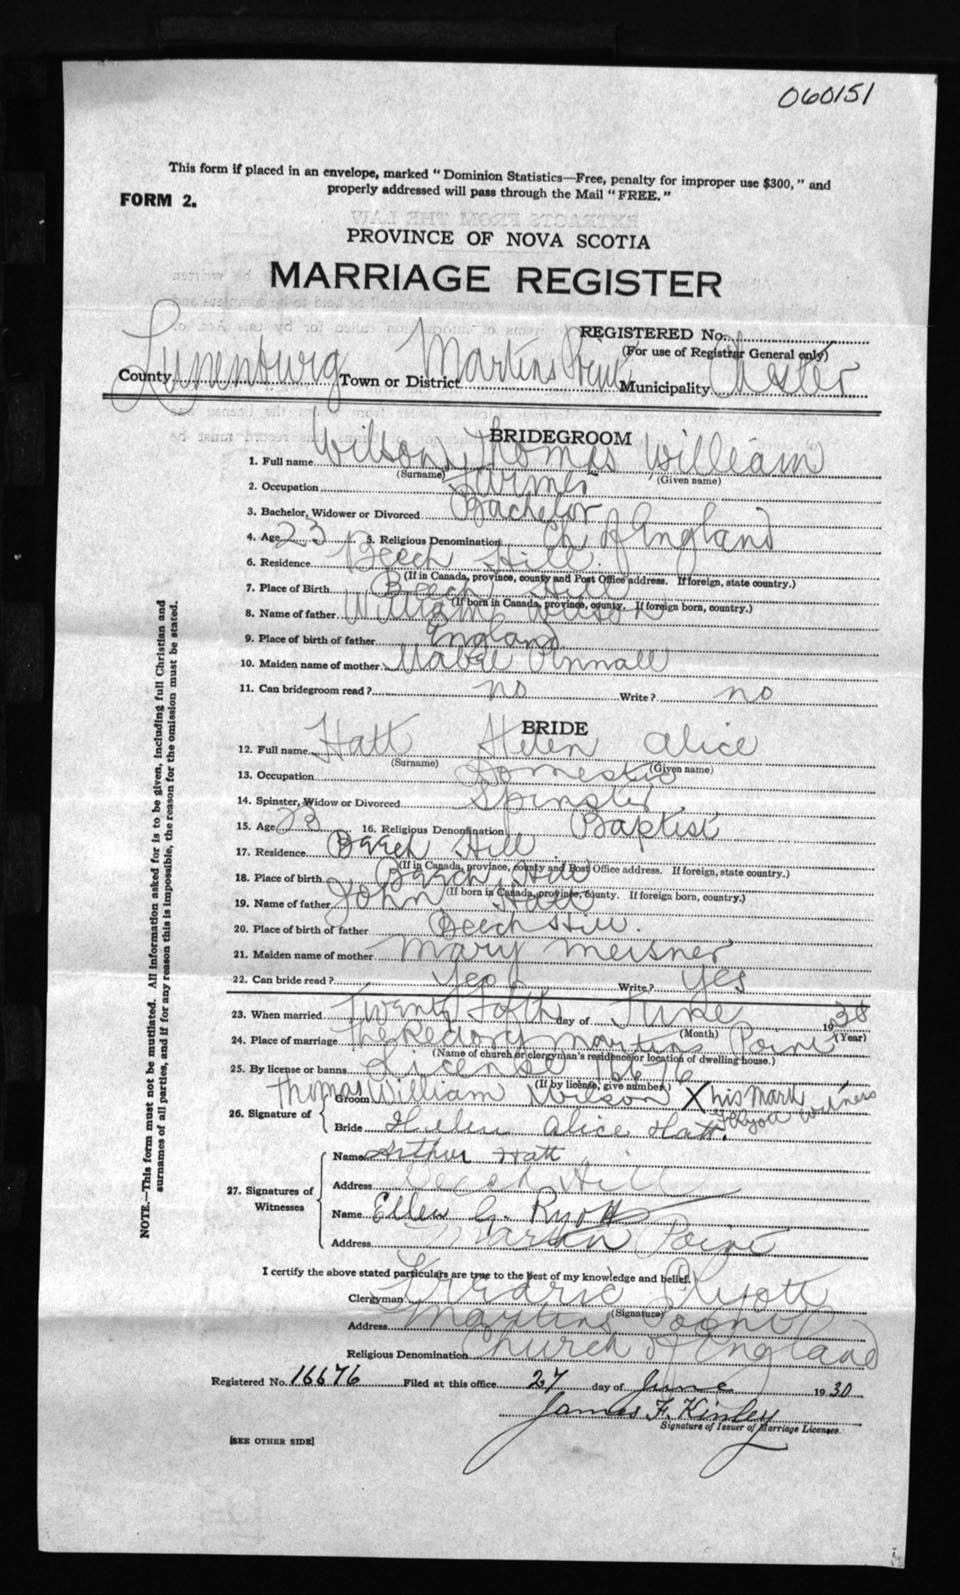 060151
This form if placed in an envelope, marked " Dominion Statistics—Free, penalty for improper use $300, " and
FORM 2.
properly addressed will pass through the Mail " FREE. "
PROVINCE OF NOVA SCOTIA
MARRIAGE REGISTER
REGISTERED No.
(For use of Registrar General only)
County Lunenburg Town or District Martins Municipality Chester
BRIDEGROOM
1. Full name Wilson, Thomas William
(Surname) (Given name)
2. Occupation Farmer
3. Bachelor, Widower or Divorced Bachelor
4. Age 23 5. Religious Denomination Ch of England
6. Residence Beech Hill.
(If in Canada, province, county and Post Office address. If foreign, state country.)
7. Place of Birth Beech Hill
(If born in Canada, province, county. If foreign born, country.)
8. Name of father William Wilson
9. Place of birth of father England
10. Maiden name of mother Mabel
11. Can bridegroom read ? no Write ? no
BRIDE
12. Full name Hatt Helen Alice
(Surname) (Given name)
13. Occupation Domestic
14. Spinster, Widow or Divorced Spinster
15. Age 23 16. Religious Denomination Baptist
17. Residence Beech Hill
(If in Canada, province, county and Post Office address. If foreign, state country.)
18. Place of birth Beech Hill
(If born in Canada, province, county. If foreign born, country.)
19. Name of father John Hatt
20. Place of birth of father Beech Hill.
21. Maiden name of mother Mary Meisner
22. Can bride read ? Yes Write ? Yes
23. When married Twenty day of June 19
(Month) (Year)
24. Place of marriage The Rectory Martins Point
(Name of church or clergyman's residence or location of dwelling house.)
25. By license or banns License 16676
(If by license, give number.)
Groom Thomas William Wilson X his mark
26. Signature of witness
Bride Helen Alice Hatt.
Name Arthur Hatt
Address Beech Hill
27. Signatures of
Witnesses
Name Ellen G. Ryott
Address Martin Point
I certify the above stated particulars are true to the best of my knowledge and belief.
Clergyman Ryott
(Signature)
Address Martins Point
Religious Denomination Church of England
Registered No. 16676 Filed at this office 27 day of June 1930
James F. Kinley
Signature of Issuer of Marriage Licenses.
[SEE OTHER SIDE]
NOTE.—This form must not be mutilated. All information asked for is to be given, including full Christian and
surnames of all parties, and if for any reason this is impossible, the reason for the omission must be stated.